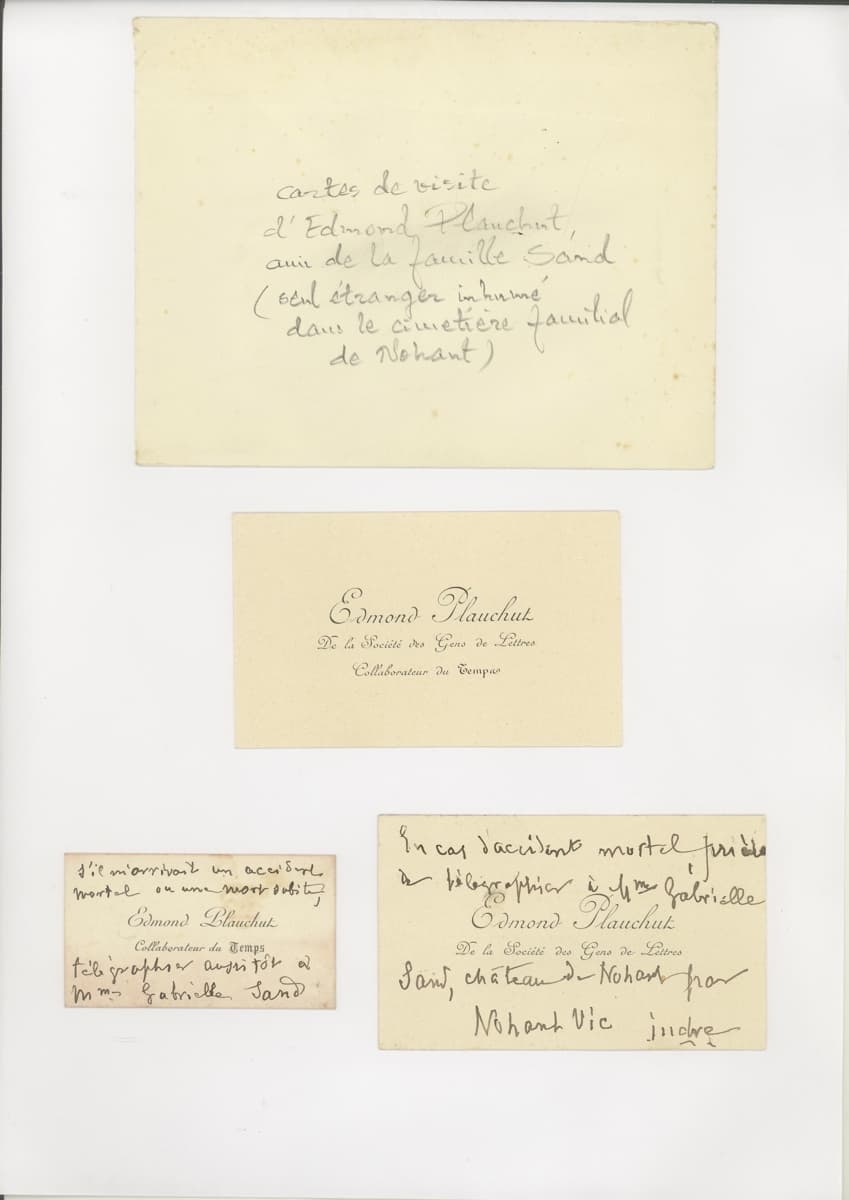 cartes de visite
d'Edmond Plauchut,
ami de la famille Sand
(seul étranger inhumé
dans le cimetière familial
de Nohant)
Edmond Plauchut
De la Société des Gens de Lettres
Collaborateur du Temps
s'il m'arrivait un accident
mortel ou une mort subite,
Edmond Plauchut
Collaborateur du Temps
télégraphier aussitôt à
Mme Gabrielle Sand
En cas d'accident mortel prière
de télégraphier à Mme Gabrielle
Edmond Plauchut
De la Société des Gens de Lettres
Sand, château de Nohant par
Nohant Vic indre